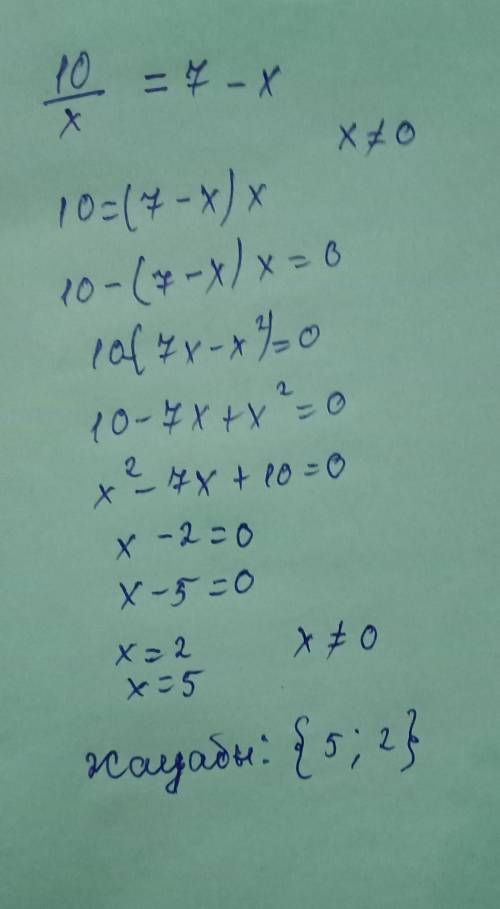 10/x = 7 - x
x ≠ 0
10 = (7 - x) x
10 - (7 - x) x = 0
10-(7x - x²) = 0
10 - 7x + x² = 0
x² - 7x + 10 = 0
x - 2 = 0
x - 5 = 0
x = 2 x ≠ 0
x = 5
жауабы: {5; 2}